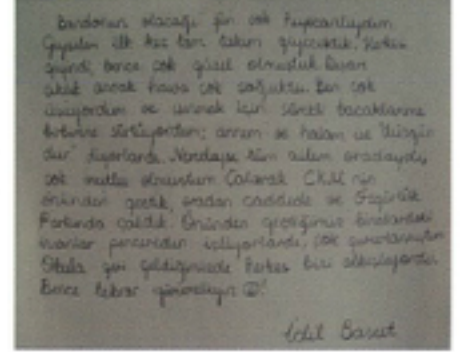 Bandonun olacağı gün çok heyecanlıydım
Giysileri ilk kez tam takım giyecektik. Herkes
giyindi, bence çok güzel olmuştuk. Dışarı
çıktık ancak hava çok soğuktu. Ben çok
üşüyordum ve ısınmak için sürekli bacaklarımı
birbirine sürtüyordum; annem ve halam ise "düzgün
dur" diyorlardı. Neredeyse tüm ailem oradaydı,
çok mutlu olmuştum. Çalarak CKM'nin
önünden geçtik, oradan caddede ve Özgürlük
Parkında çaldık. Önünden geçtiğimiz binalardaki
insanlar pencereden izliyorlardı, çok gururlanmıştım.
Okula geri geldiğimizde herkes bizi alkışlıyordu.
Bence tekrar